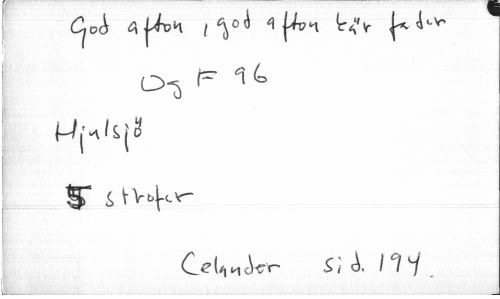 God afton, god afton kär fader
Og F 96
Hjulsjö
5 strofer
Celander sid. 194.